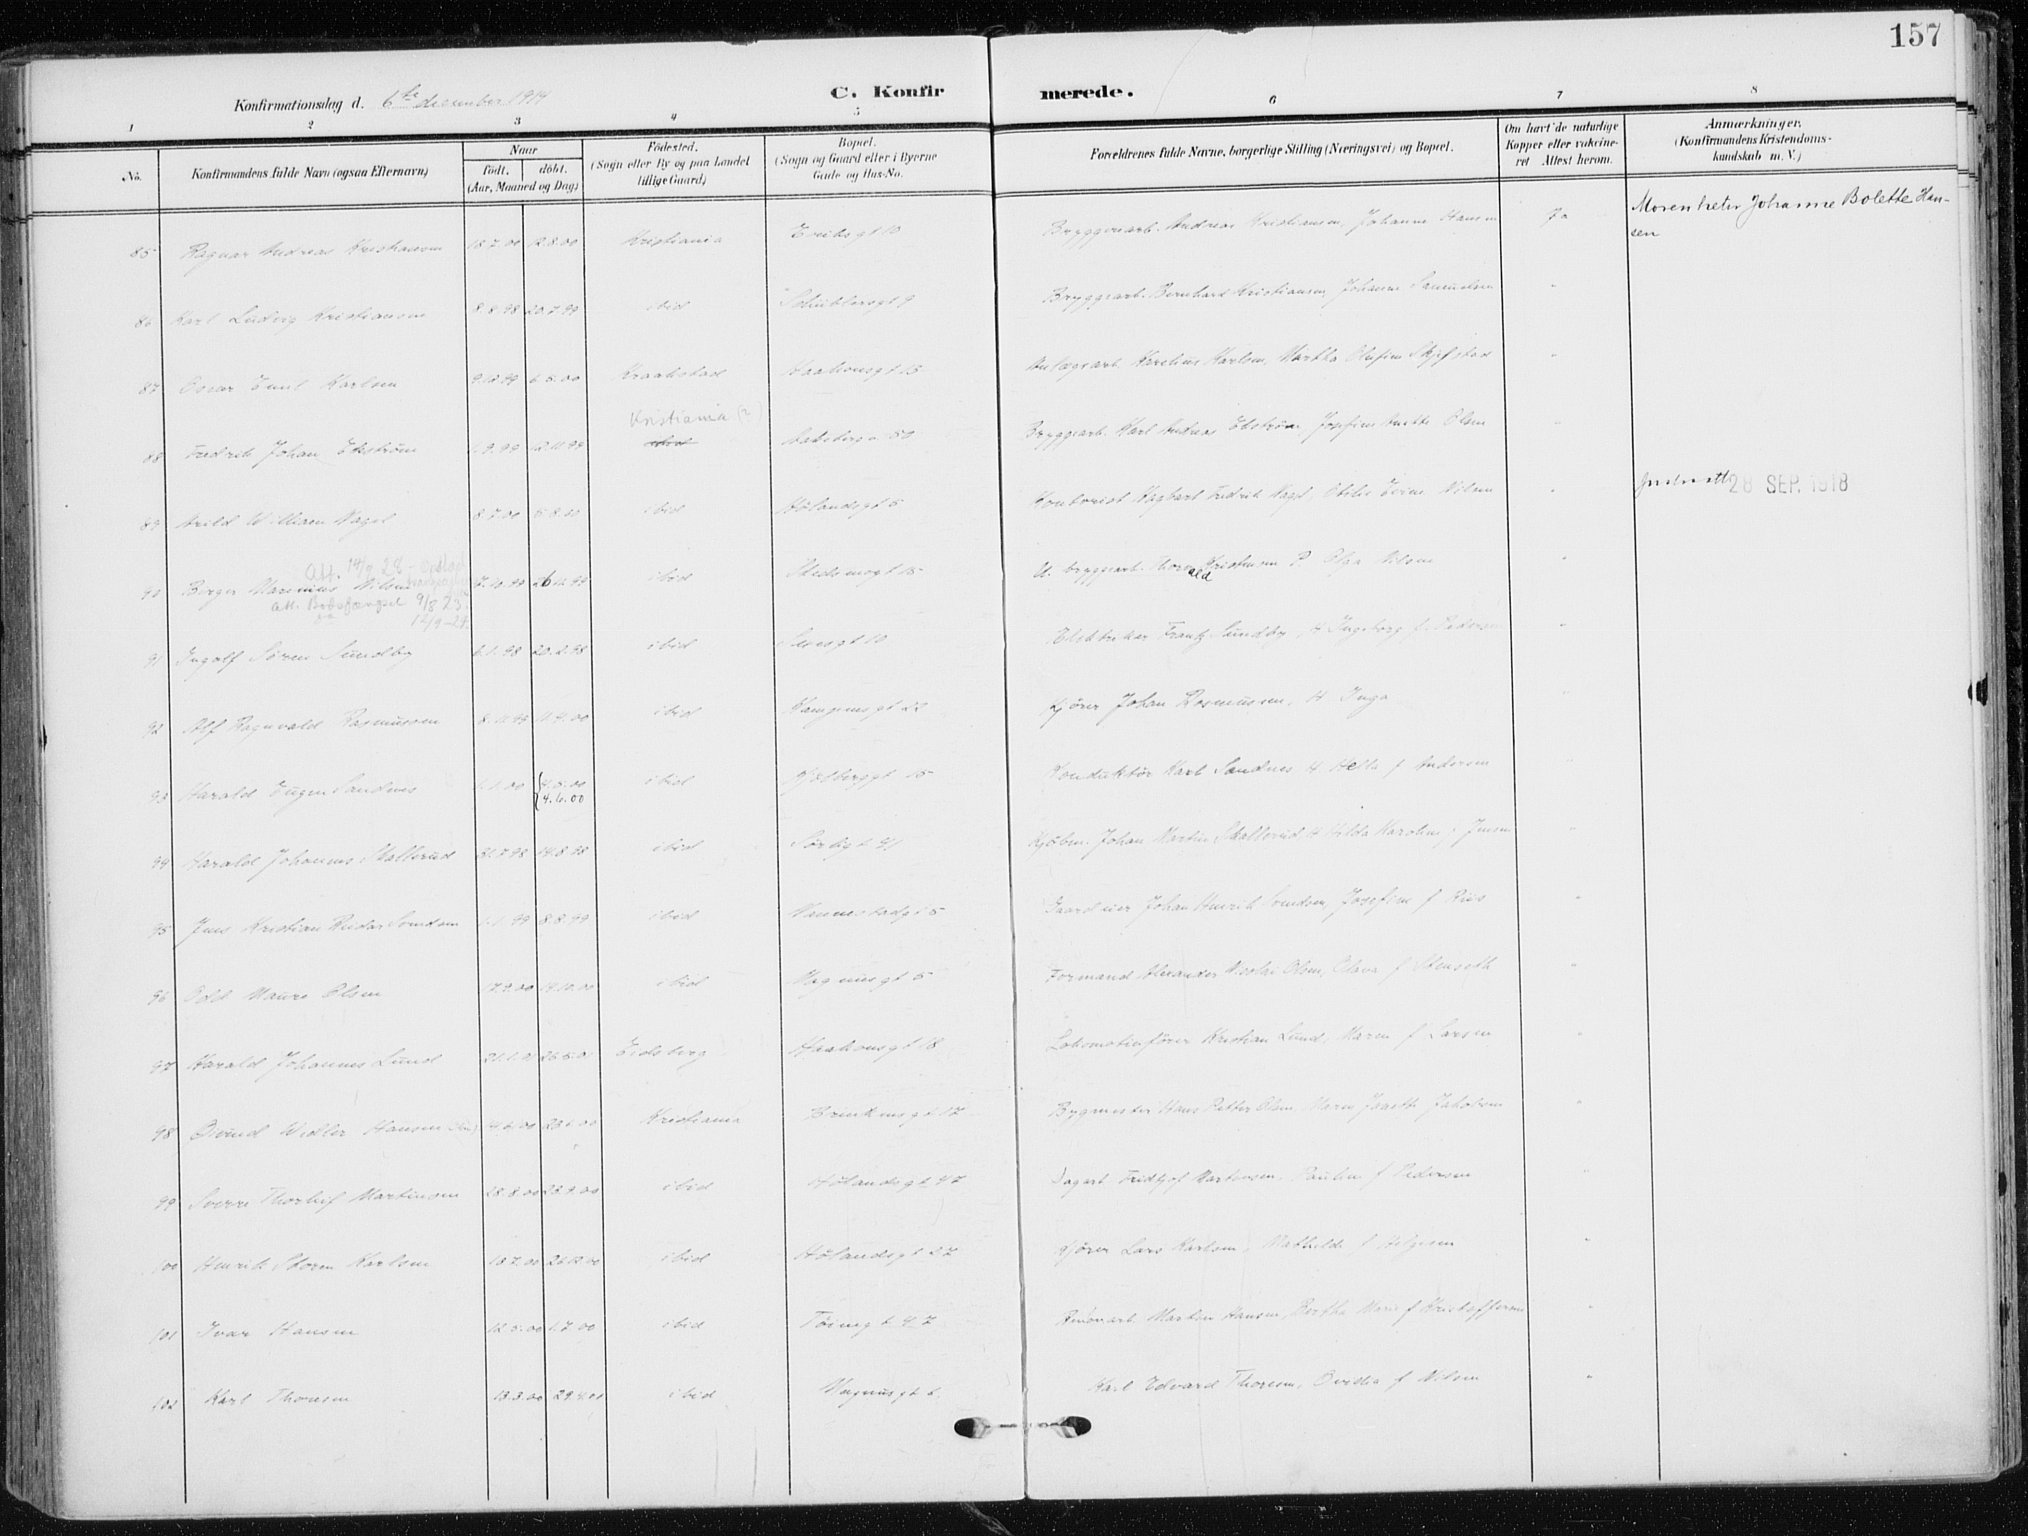 157
Konfirmationsdag d. 6te december 1914
C. Konfirmerede.
1 2 3 4 5 6 7 8
No. Konfirmandens fulde Navn (ogsaa Efternavn) Naar født. døbt. (Aar, Maaned og Dag) Fødested. (Sogn eller By og paa Landet tillige Gaard) Bopæl. (Sogn og Gaard eller i Byerne Gade og Hus-No. Forældrenes fulde Navne, borgerlige Stilling (Næringsvei) og Bopæl. Om havt de naturlige Kopper eller vakcineret Attest herom. Anmærkninger. (Konfirmandens Kristendomskundskab m. V.)
85 Ragnar Andreas Kristiansen 18.7.00 12.8.00 Kristiania Eriksgt 10 Bryggeriarb. Andreas Kristiansen, Johanne Hansen Ja Moren heter Johanne Bolette Han-
sen
86 Karl Ludvig Kristiansen 8.8.98 20.7.99 ibid Schüblersgt 9 Bryggearb. Bernhard Kristiansen, Johanne Samuelsen "
87 Oscar Emil Karlsen 9.12.99 6.5.00 Kraakstad Haakonsgt 15 Anlægsarb. Karelius Karlsen, Martha Olufine Skjefstad "
Kristiania (?)
88 Fredrik Johan Ekström 1.9.99 12.11.99 ibid 80 Bryggearb. Karl Andreas Ekström, Josefine Anette Olsen "
89 Arild William Nagel 8.7.00 5.8.00 ibid Hölandsgt 5 Kontorist Fredrik Nagel, Nilsen " 28 SEP. 1918
Att. 14/9 28 -
90 Birger Marenius Nilsen 7.10.99 26.11.99 ibid Skedsmogt 15 U. bryggearb. Thorvald Kristensen P. Olga Nilsen "
att. Bodsfængsel 9/8 23.
12/9-27.
91 Ingolf Sören Sundby 6.1.98 20.2.98 ibid 10 Elektriker Frantz Sundby, H Ingeborg f. Pedersen "
92 Alf Ragnvald Rasmussen 8.11.99 11.4.00 ibid Kampensgt 22 Kjörer Johan Rasmussen, H Inga "
93 Harald Eugen Sandnes 1.1.00 {4.5.00 4.6.00 ibid Kjölberggt 15 Konduktör Karl Sandnes H Hella f Andersen "
94 Harald Johannes Skallerud 31.7.98 14.8.98 ibid Sörligt 41 Kjöbm. Johan Martin Skallerud H Hilda Karoline f Jensen "
95 Jens Kristian Reidar Svendsen 1.1.99 8.8.99 ibid Vannestadgt 5 Gaardeier Johan Henrik Svendsen, Josefine f Riis "
96 Odd Maure Olsen 17.9.00 14.10.00 ibid Magnusgt 5 Formand Alexander Nicolai Olsen, Olava f Stenseth "
97 Harald Johannes Lund 21.1.01 26.5.01 Eidsberg Haakonsgt 18 Lokomotivförer Kristian Lund, Maren f Larsen "
98 Öivind Widler Hansen 14.6.00 23.6.00 Kristiania Brinkensgt 17 Bygmester Hans Petter Olsen, Maren Josette Jakobsen "
99 Sverre Thorleif Martinsen 28.8.00 23.9.00 ibid Hölandsgt 47 Dagarb. Fridtjof Martinsen, Pauline f Pedersen "
100 Henrik Storm Karlsen 18.7.00 26.12.00 ibid Hölandsgt 27 Kjörer Lars Karlsen, Mathilde f Helgesen "
101 Ivar Hansen 12.5.00 1.7.00 ibid Töiengt 47 Martin Hansen, Bertha Marie f Kristoffersen "
102 Karl Thoresen 13.3.00 29.4.00 ibid Magnusgt 6 Karl Edvard Thoresen, Ovidia f Nilsen "